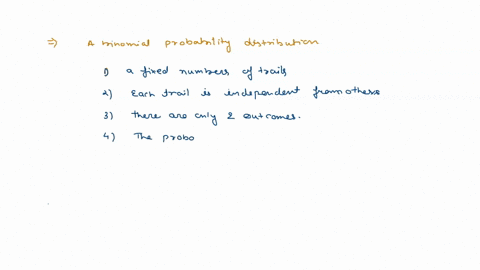 ⇒ A binomial probability distribution
1) a fixed numbers of trails
2) Each trail is independent from others
3) there are only 2 outcomes.
4) The probo